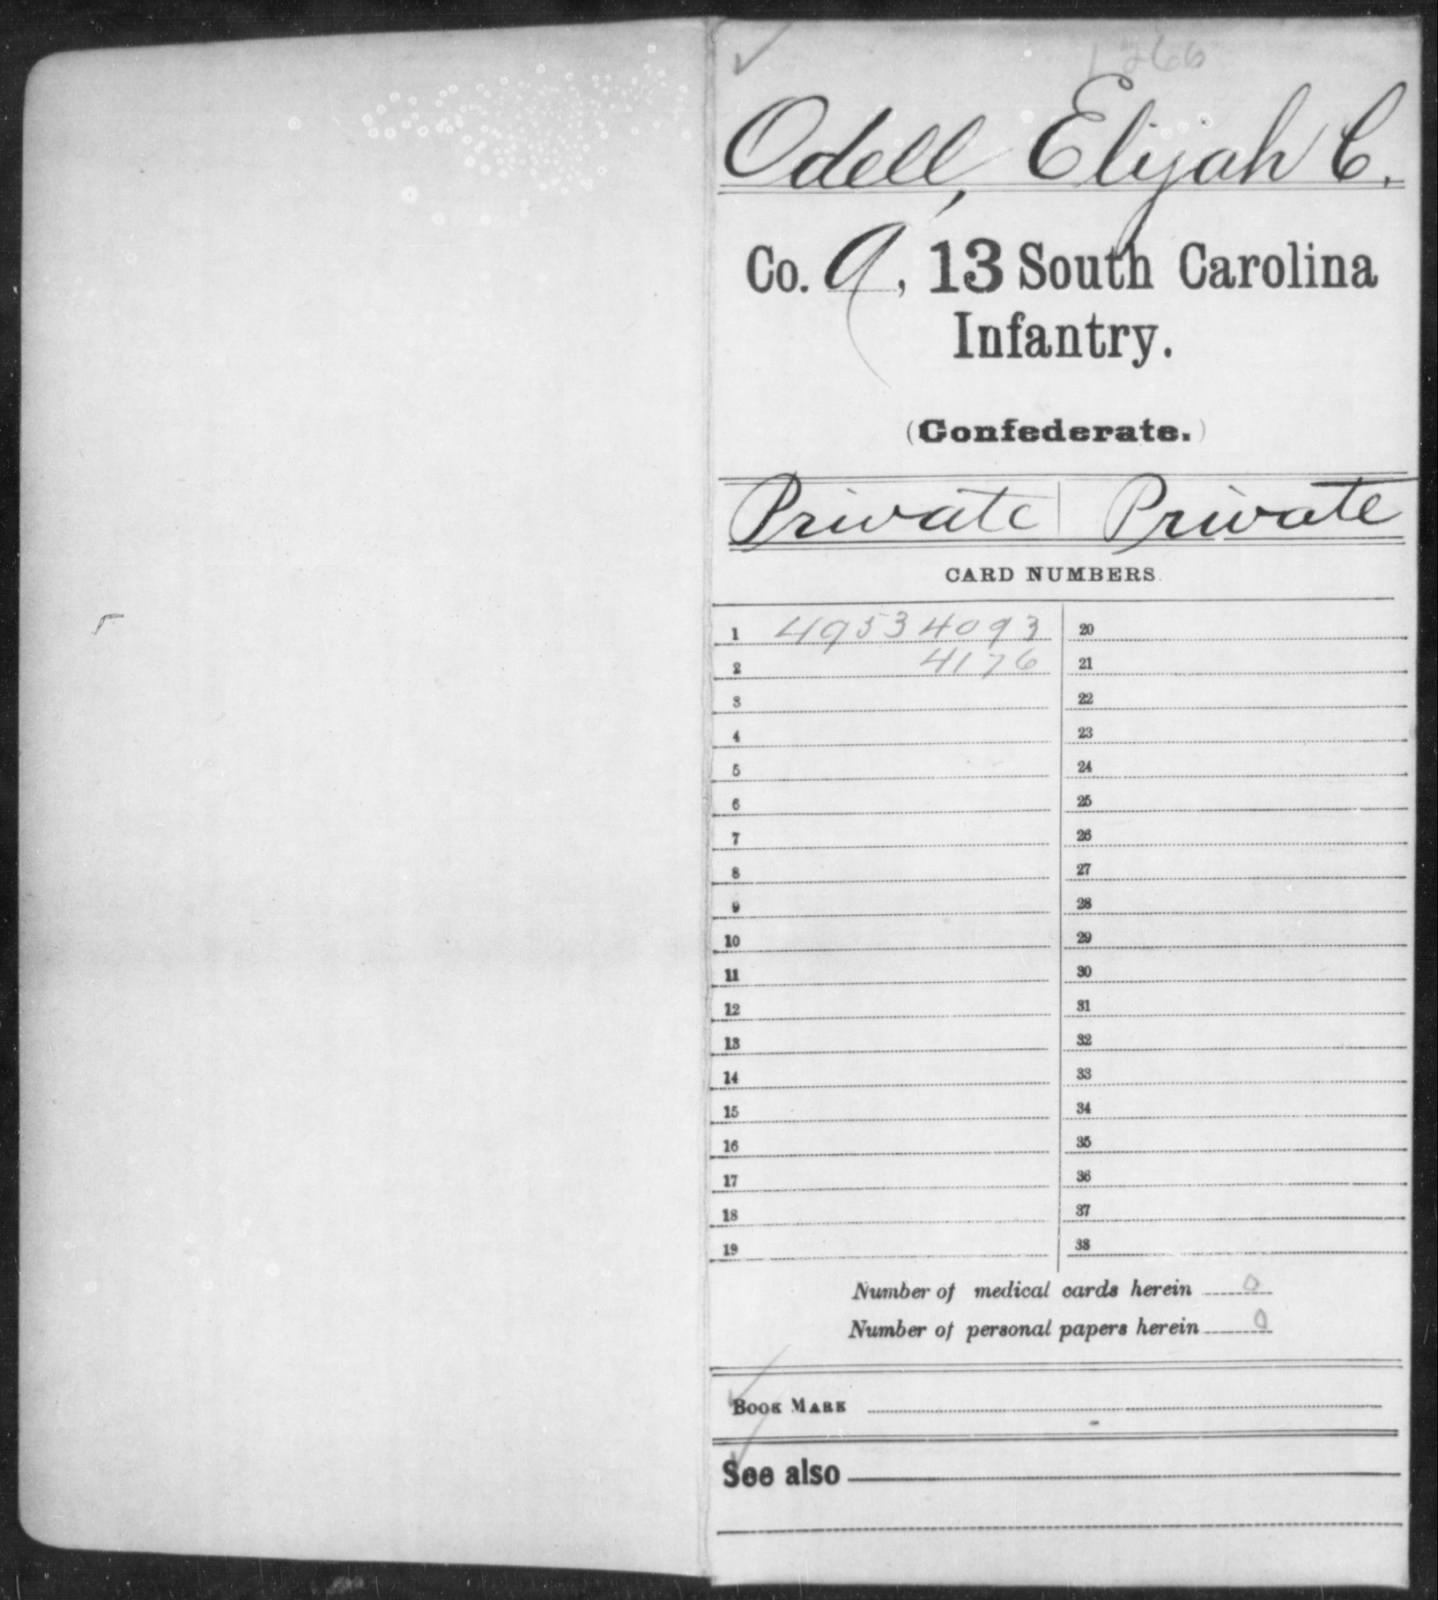 1266
Odell, Elijah C.
Co. , 13 South Carolina
Infantry.
(Confederate.)
Private | Private
CARD NUMBERS.
1 49534093 20
2 4176 21
3 22
4 23
5 24
6 25
7 26
8 27
9 28
10 29
11 30
12 31
13 32
14 33
15 34
16 35
17 36
18 37
19 38
Number of medical cards herein 0
Number of personal papers herein 0
BOOK MARK
See also